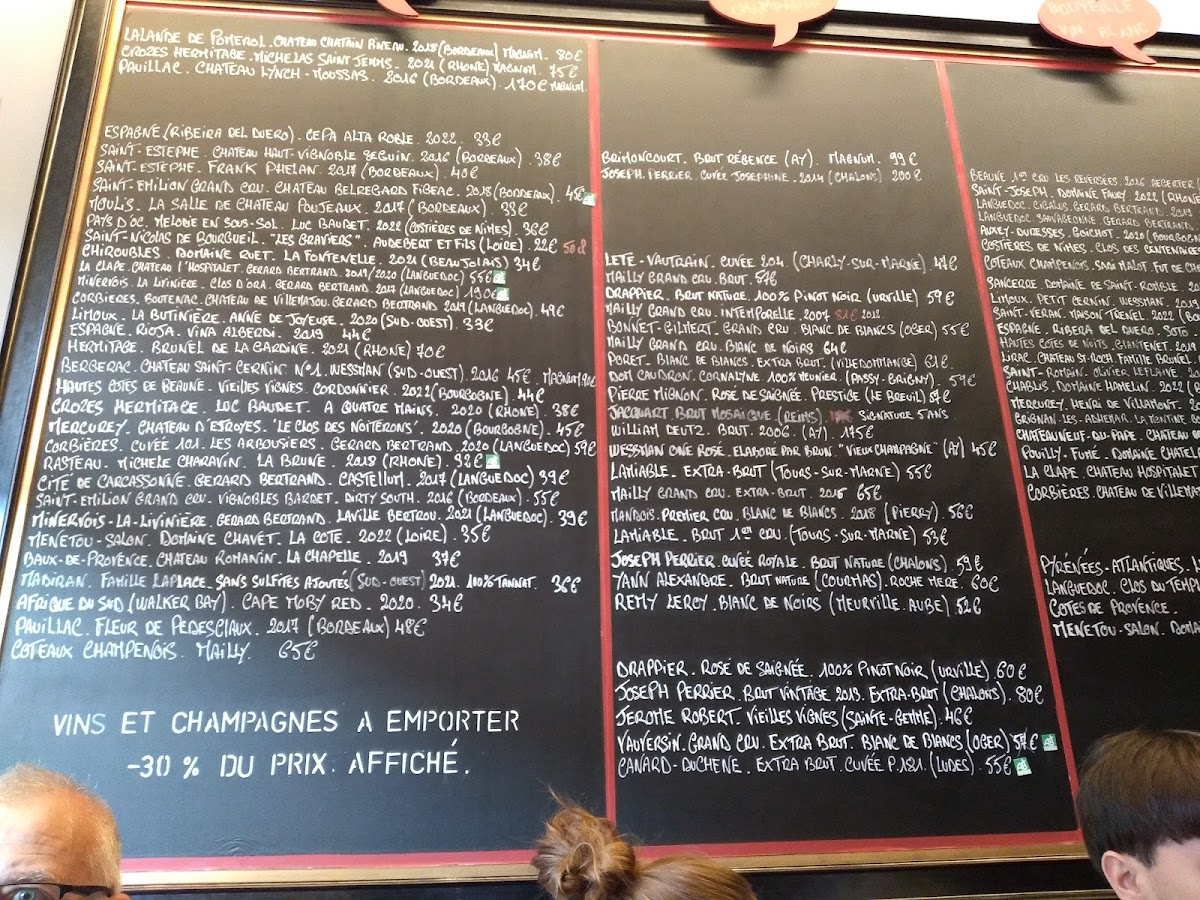 CHAMPAGNE
BOUTEILLE
VIN BLANC
LALANDE DE POMEROL. CHATEAU CHATAIN PINEAU. 2018 (BORDEAUX) MAGNUM. 80€
CROZES HERMITAGE. MICHELAS SAINT JEMMS. 2021 (RHONE) MAGNUM. 75€
PAUILLAC. CHATEAU LYNCH-MOUSSAS. 2016 (BORDEAUX). 170€ MAGNUM.
ESPAGNE (RIBEIRA DEL DUERO). CEPA ALTA ROBLE. 2022. 33€
SAINT-ESTEPHE. CHATEAU HAUT-VIGNOBLE SEGUIN. 2016 (BORDEAUX). 38€
SAINT-ESTEPHE. FRANK PHELAN. 2017 (BORDEAUX). 40€
SAINT-EMILION GRAND CRU. CHATEAU BELREGARD FIGEAC. 2018 (BORDEAUX). 45€
MOULIS. LA SALLE DE CHATEAU POUJEAUX. 2017 (BORDEAUX). 33€
PAYS D'OC. MELODIE EN SOUS-SOL. LUC BAUDET. 2022 (COSTIÈRES DE NIMES). 38€
SAINT-NICOLAS DE BOURGUEIL. "LES GRAVIERS". AUDEBERT ET FILS (LOIRE). 22€ 50cl
CHIROUBLES. DOMAINE RUET. LA FONTENELLE. 2021 (BEAUJOLAIS) 34€
LA CLAPE. CHATEAU L'HOSPITALET. GERARD BERTRAND. 2019/2020 (LANGUEDOC) 55€
MINERVOIS. LA LIVINIÈRE. CLOS D'ORA. GERARD BERTRAND. 2017 (LANGUEDOC). 190€
CORBIÈRES. BOUTENAC. CHATEAU DE VILLEMAJOU. GERARD BERTRAND. 2019 (LANGUEDOC). 49€
LIMOUX. LA BUTINIÈRE. ANNE DE JOYEUSE. 2020 (SUD-OUEST). 33€
ESPAGNE. RIOJA. VINA ALBERDI. 2019. 44€
HERMITAGE. BRUNEL DE LA GARDINE. 2021 (RHONE) 70€
BERGERAC. CHATEAU SAINT-CERNIN N°1. WESSMAN (SUD-OUEST). 2016 45€. MAGNUM. 90€
HAUTES COTES DE BEAUNE. VIEILLES VIGNES. CORDONNIER. 2022 (BOURGOGNE). 44€
CROZES HERMITAGE. LUC BAUDET. A QUATRE MAINS. 2020 (RHONE). 38€
MERCUREY. CHATEAU D'ETROYES. "LE CLOS DES NOITERONS". 2020 (BOURGOGNE). 45€
CORBIÈRES. CUVÉE 101. LES ARBOUSIERS. GERARD BERTRAND. 2020 (LANGUEDOC) 59€
RASTEAU. MICHELE CHARAVIN. LA BRUNE. 2018 (RHONE). 92€
CITÉ DE CARCASSONNE. GERARD BERTRAND. CASTELLUM. 2017 (LANGUEDOC) 39€
SAINT-EMILION GRAND CRU. VIGNOBLES BARDET. DIRTY SOUTH. 2016 (BORDEAUX). 55€
MINERVOIS-LA-LIVINIÈRE. GERARD BERTRAND. LAVILLE BERTROU. 2021 (LANGUEDOC). 39€
MENETOU-SALON. DOMAINE CHAVET. LA COTE. 2022 (LOIRE). 35€
BAUX-DE-PROVENCE. CHATEAU ROMANIN. LA CHAPELLE. 2019 37€
MADIRAN. FAMILLE LAPLACE. SANS SULFITES AJOUTÉS (SUD-OUEST) 2021. 100% TANNAT. 36€
AFRIQUE DU SUD (WALKER BAY). CAPE MOBY RED. 2020. 34€
PAUILLAC. FLEUR DE PEDESCLAUX. 2017 (BORDEAUX) 48€
COTEAUX CHAMPENOIS. MAILLY. 65€
VINS ET CHAMPAGNES A EMPORTER
-30% DU PRIX AFFICHÉ.
BRIMONCOURT. BRUT RÉGENCE (AY). MAGNUM. 99€
JOSEPH PERRIER. CUVÉE JOSEPHINE. 2014 (CHALONS) 200€
LETE-VAUTRAIN. CUVÉE 204. (CHARLY-SUR-MARNE). 47€
MAILLY GRAND CRU. BRUT. 51€
DRAPPIER. BRUT NATURE. 100% PINOT NOIR (URVILLE) 59€
MAILLY GRAND CRU. INTEMPORELLE. 2007 81€ 2012.
BONNET-GILMERT. GRAND CRU. BLANC DE BLANCS (OGER) 55€
MAILLY GRAND CRU. BLANC DE NOIRS 64€
PORET. BLANC DE BLANCS. EXTRA BRUT. (VILLEDOMMANGE) 61€.
DOM CAUDRON. CORNALYNE 100% MEUNIER. (PASSY-GRIGNY). 59€
PIERRE MIGNON. ROSE DE SAIGNÉE. PRESTIGE (LE BREUIL) 54€
JACQUART BRUT MOSAIQUE. (REIMS). SIGNATURE 5 ANS.
WILLIAM DEUTZ. BRUT. 2006. (AY). 175€
WESSMAN ONE ROSÉ. ELABORÉ PAR BRUN. "VIEUX CHAMPAGNE" (AY) 45€
LAMIABLE. EXTRA-BRUT (TOURS-SUR-MARNE) 55€
MAILLY GRAND CRU. EXTRA-BRUT. 2015 65€
MANDOIS. PREMIER CRU. BLANC DE BLANCS. 2018 (PIERRY). 56€
LAMIABLE. BRUT 1er CRU. (TOURS-SUR-MARNE) 53€
JOSEPH PERRIER. CUVÉE ROYALE. BRUT NATURE (CHALONS) 59€
YANN ALEXANDRE. BRUT NATURE (COURMAS). ROCHE MERE. 60€
REMY LEROY. BLANC DE NOIRS (MEURVILLE. AUBE) 52€
DRAPPIER. ROSÉ DE SAIGNÉE. 100% PINOT NOIR (URVILLE) 60€
JOSEPH PERRIER. BRUT VINTAGE 2013. EXTRA-BRUT (CHALONS). 80€
JEROME ROBERT. VIEILLES VIGNES (SAINTE-GEMME). 46€
VAUVERSIN. GRAND CRU. EXTRA BRUT. BLANC DE BLANCS (OGER) 57€
CANARD-DUCHENE. EXTRA BRUT. CUVÉE P.181. (LUDES). 55€
BEAUNE 1er CRU LES REVERSÉES. 2016
SAINT-JOSEPH. DOMAINE FAURY. 2022 (RHONE
LANGUEDOC. CIGALUS. GERARD BERTRAND. 2019
LANGUEDOC SAUVAGEONNE. GERARD BERTRAND.
AUXEY-DURESSES. BOICHOT. 2020 (BOURGOGNE
COSTIÈRES DE NIMES. CLOS DES CENTENAIRES
COTEAUX CHAMPENOIS. SADI MALOT. FUT DE C
SANCERRE. DOMAINE DE SAINT-ROMBLE. 20
LIMOUX. PETIT CERNIN. WESSMAN. 20
SAINT-VERAN. MAISON TRENEL. 2022 (BO
ESPAGNE. RIBERA DEL DUERO. SOTO
HAUTES COTES DE NUITS. CHANTENET. 2019
LIRAC. CHATEAU ST-ROCH. FAMILLE BRUNEL.
SAINT-ROMAIN. OLIVIER LEFLAIVE. 20
CHABLIS. DOMAINE HAMELIN. 2022 (
MERCUREY. HENRI DE VILLAMONT. 20
GRIGNAN-LES-ADHEMAR. LA MONTINE
CHATEAUNEUF-DU-PAPE. CHATEAU
POUILLY-FUMÉ. DOMAINE CHATEL
LA CLAPE. CHATEAU HOSPITALET
CORBIÈRES. CHATEAU DE VILLEMA
PYRÉNÉES-ATLANTIQUES.
LANGUEDOC. CLOS DU TEMP
COTES DE PROVENCE.
MENETOU-SALON. DOMA